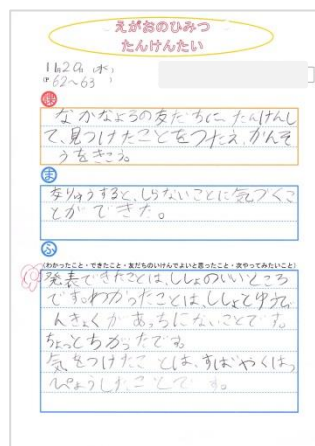 えがおのひみつ
たんけんたい
11/20(水)
P62～63
め
なかなよろの友だちに、たんけんし
て、見つけたことをつたえ、かんそ
うをきこう。
ま
まりゅうすると、しらないことに気づくこ
とができた。
ふ
(わかったこと・できたこと・友だちのいけんでよいと思ったこと・次やってみたいこと)
発表できたことは、ししょのいいところ
です。わかったことは、ししょとゆうびん
んきょくがあっちにないことです。
ちょっとちがったです。
気をつけたことは、すばやくはっ
ぴょうしたことです。